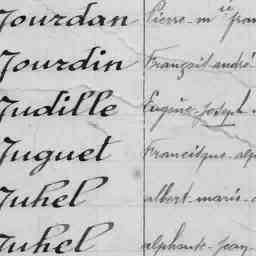 Jourdan Pierre-m ie fran
Jourdin François andré
Judille Eugène-Joseph
Juguet Francisque-alp
Juhel albert-marie-
Juhel alphonse-jean-